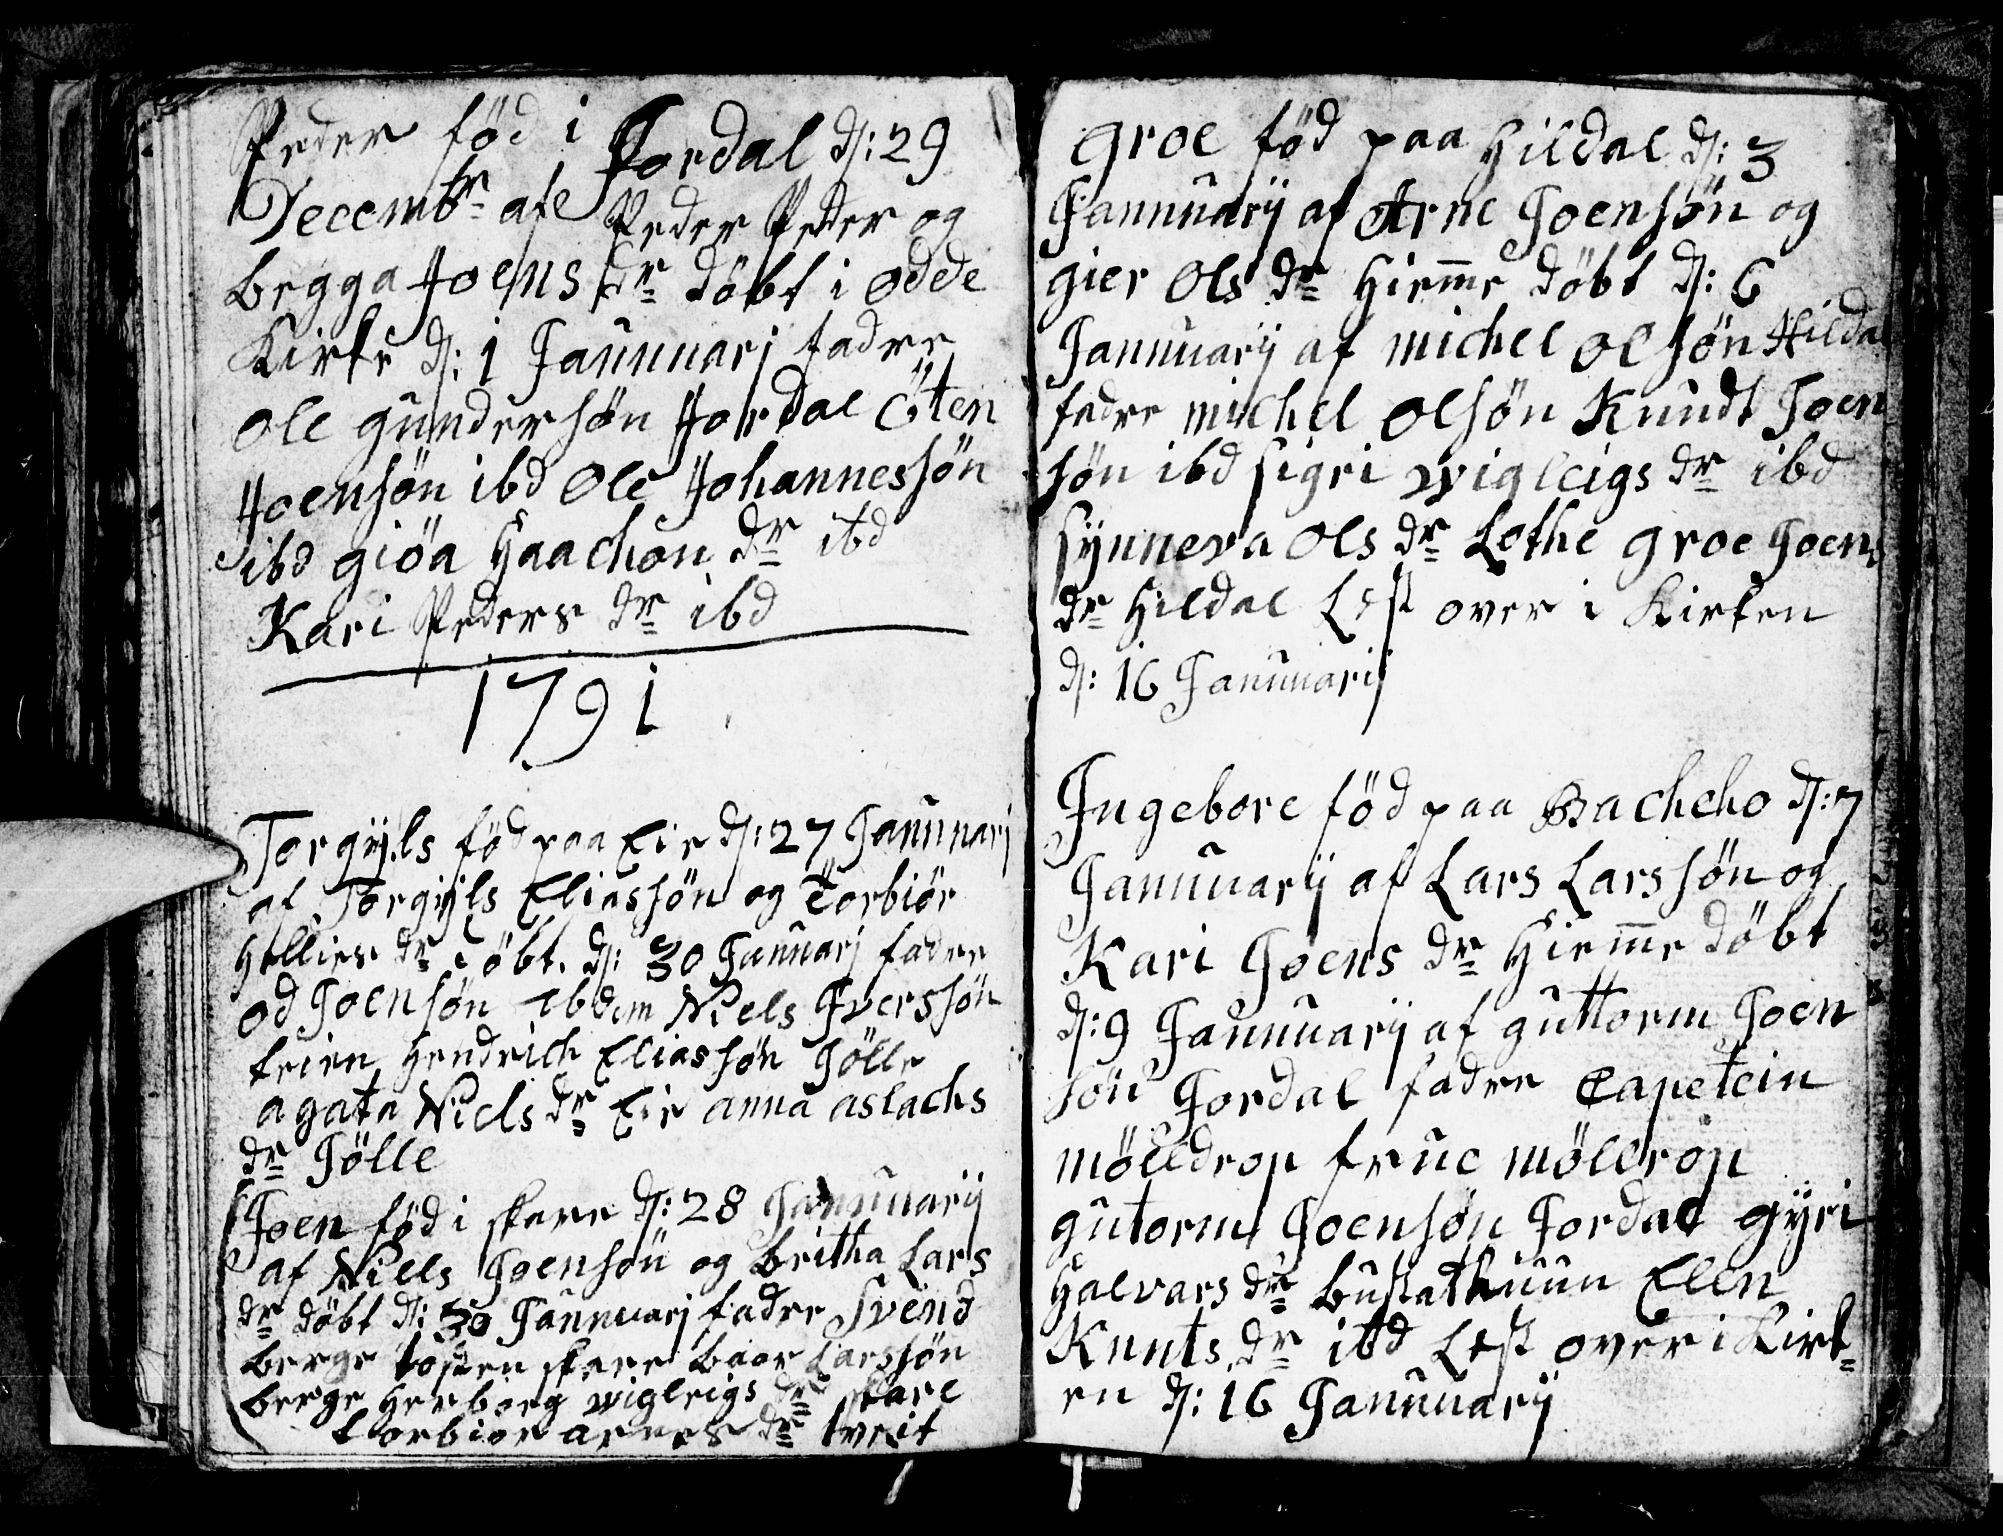 Peder föd i Jordal d: 29
Decembr afe Peder Peder og
begga Joens dr döbt i odde
Kirke d: 1 Jannuarj fadre
Ole gundersøn Jordal östen
Joensøn ibd Ole Johannessøn
ibd giöa Haachon dr ibd
Kari Peders dr ibd
1791
Torgÿls föd paa Eie d: 27 Jannuarj
af Torgÿls Eliassøn og Torbiör
Hellies dr döbt. d: 30 Januarj fadre
od Joensøn ibdem Niels Iverssøn
treien Hendrich Eliassøn Jölle
agata Niels dr Eie anna aslachs
dr Jölle
Joen föd i skare d: 28 Jannuarÿ
af Niels Joensøn og britha Lars
dr döbt d: 30 Jannuarj fadre Svend
berge tosten skare baar Larssøn
berge Herborg wigleigs dr skare
torbior arnes dr tveit
groe föd paa Hildal d: 3
Jannuarÿ af Arne Joensøn og
gier Ols dr Hiemme döbt d: 6
Jannuarÿ af michel Olsøn Hildal
fadre michel Olsøn Knudt Joen
søn ibd sigri wigleigs dr ibd
sÿnneva Ols dr Lothe groe Joens
dr Hildal Lest over i Kirken
d: 16 Januuarÿ
Ingebore föd paa Bacheho d: 7
Januuarÿ af Lars Larssøn og
Kari Joens dr Hiemme döbt
d: 9 Jannuarÿ af guttorm Joen
søn Jordal fadre Capetein
mölldrop frue möllrop
gutorm Joensøn Jordal gÿri
Halvars dr bustathuun Elen
Knuts dr ibd Lest over i Kirk=
en d: 16 Januuarÿ